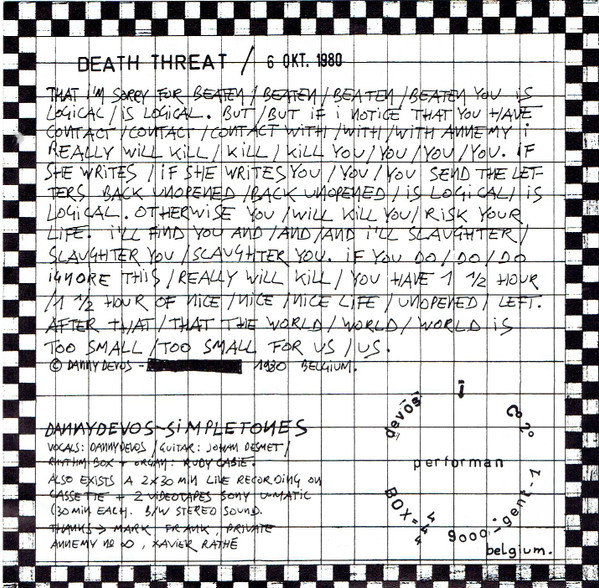 DEATH THREAT / 6 OKT. 1980
THAT I'M SORRY FOR BEATEN / BEATEN / BEATEN / BEATEN YOU IS
LOGICAL / IS LOGICAL. BUT / BUT IF I NOTICE THAT YOU HAVE
CONTACT / CONTACT / CONTACT WITH / WITH / WITH ANNEMY I
REALLY WILL KILL / KILL / KILL YOU / YOU / YOU / YOU. IF
SHE WRITES / IF SHE WRITES YOU / YOU / YOU SEND THE LET-
TERS BACK UNOPENED / BACK UNOPENED / IS LOGICAL / IS
LOGICAL. OTHERWISE YOU / WILL KILL YOU / RISK YOUR
LIFE. I'LL FIND YOU AND / AND / AND I'LL SLAUGHTER /
SLAUGHTER YOU / SLAUGHTER YOU. IF YOU DO / DO / DO
IGNORE THIS / REALLY WILL KILL / YOU HAVE 1 1/2 HOUR
/ 1 1/2 HOUR OF NICE / NICE / NICE LIFE / UNOPENED / LEFT.
AFTER THAT / THAT THE WORLD / WORLD / WORLD IS
TOO SMALL / TOO SMALL FOR US / US.
© DANNYDEVOS - 1980 BELGIUM.
DANNYDEVOS - SIMPLETONES
VOCALS: DANNYDEVOS / GUITAR: JOHAN DESMET /
RHYTHM BOX + ORGAN: RUDY GABIE.
ALSO EXISTS A 2x30 MIN LIVE RECORDING ON
CASSETTE + 2 VIDEOTAPES SONY U-MATIC
(30 MIN EACH. B/W STEREO SOUND.
THANKS → MARK FRANK, PRIVATE
ANNEMY no ∞, XAVIER RATHÉ
devos
i
performan
BOX=
9000-gent-1
belgium.